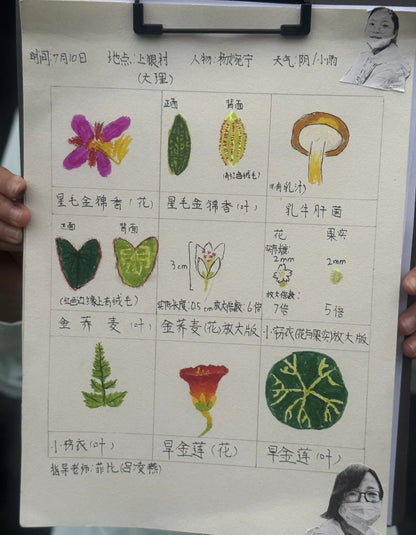 时间:7月10日 地点:上银村 人物:杨婉宁 天气:阴/小雨
(大理)
正面 背面
(有红色绒毛)
(有乳汁)
星毛金锦香(花) 星毛金锦香(叶) 乳牛肝菌
正面 背面
3cm
花 果实
实际长度:
2mm 2mm
(红色边缘上有绒毛)
实际长度:0.5cm 放大倍数:6倍
放大倍数:
7倍 5倍
金荞麦(叶) 金荞麦(花)放大版 小窃衣(花与果实)放大版
小窃衣(叶) 旱金莲(花) 旱金莲(叶)
指导老师:菲比(吕凌燕)